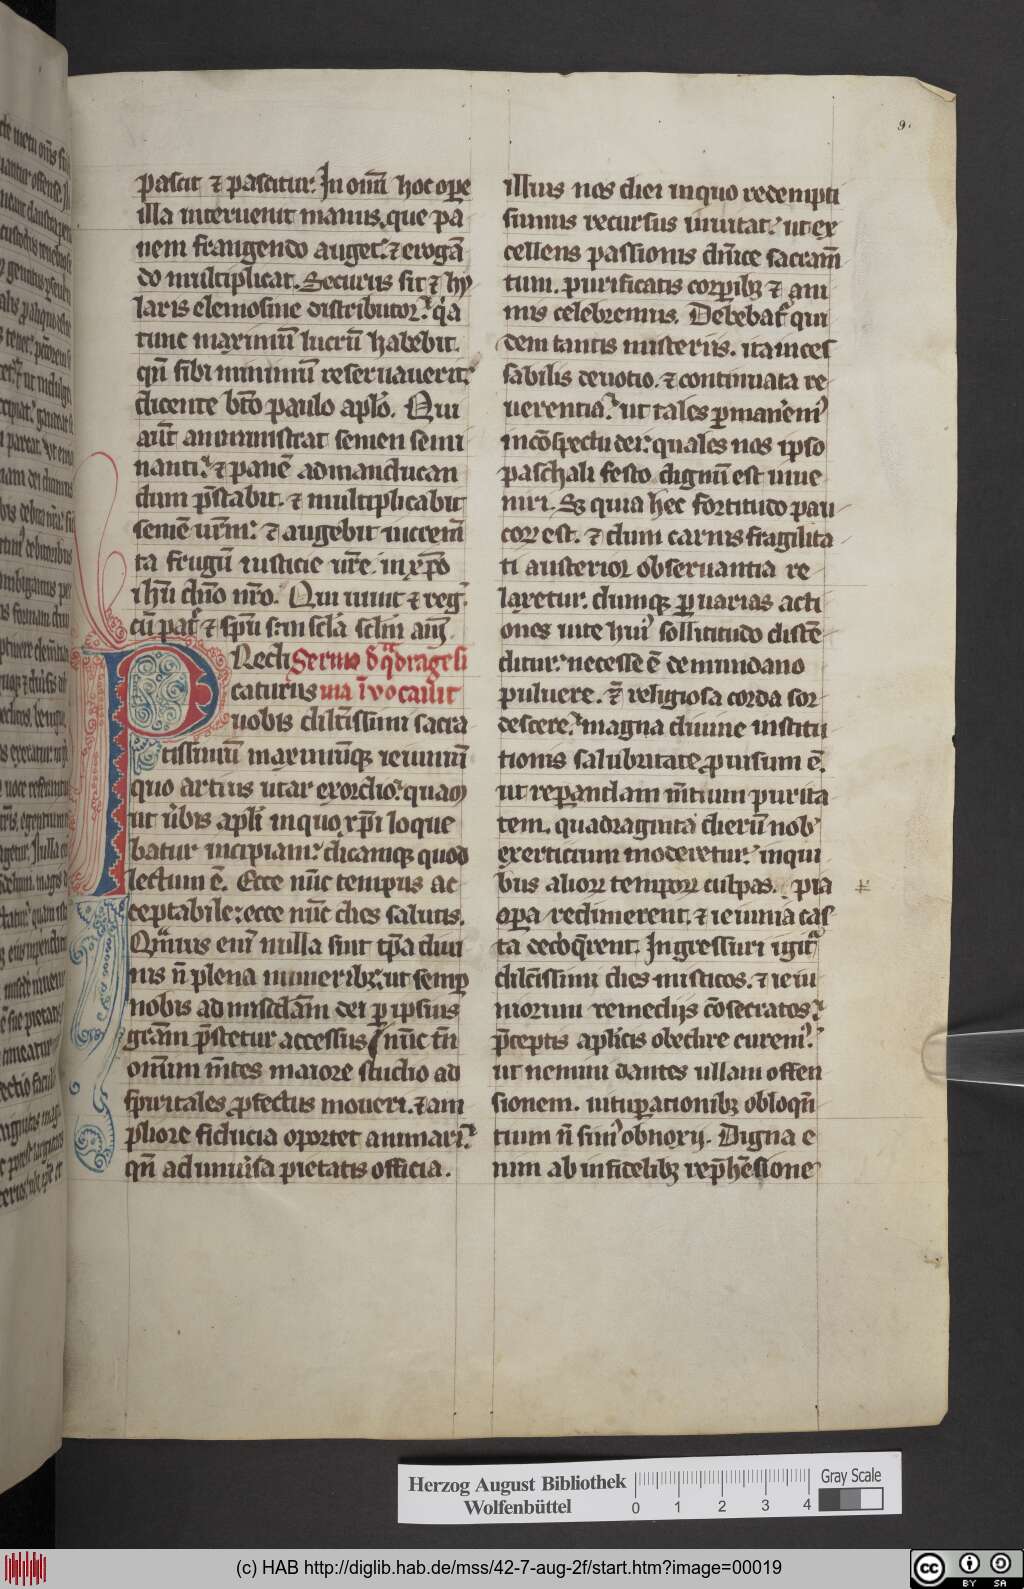 9.
pascit ⁊ pascitur. In om̄i hoc oꝑe
illa interuenit manus, que pa
nem frangendo auget. ⁊ erogā
do multiplicat. Securus sit ⁊ hy
laris elemosine distributor. qꝛ
tunc maximū lucrū habebit.
qn̄ sibi minimū reseruauerit.
dicente bt̄o paulo apl̓o. Qui
aūt amministrat semen semi
nanti. ⁊ panē ad manducan
dum p̄stabit. ⁊ multiplicabit
semē ur̄m. ⁊ augebit increm̄
ta frugū iusticie ur̄e. in xp̄o
ih̄u dn̄o nr̄o. Qui uiuit ⁊ reg̓.
cū pat̓ ⁊ sp̄u s. in scl̓a scl̓m am̄.
PRedi Sermo d̓ q̓drages̓i
caturus ma īuocauit
uobis dilc̄issimi sacra
tissimū maximūq; ieiuniū
quo artius utar exordio. quaꝫ
ut ūbis apl̓i in quo xp̄i loque
batur incipiam. dicamq; quod
lectum ē. Ecce nūc tempus ac
ceptabile: ecce nūc dies salutis.
Qm̓uis eni̓ nulla sint tp̄a diui
nis n̄ plena muneribꝫ. ut semꝑ
nobis ad misc̓dāꝫ dei ꝑ ipsius
gr̄am p̄stetur accessus, nūc tn̄
omnium m̄tes maiore studio ad
spiritales ꝓfectus moueri. ⁊ am
pliore fiducia oportet animari.
qn̄ ad uniu̓sa pietatis officia.
illius nos diei in quo redempti
sumus recursus inuitat. ut ex
cellens passionis dn̄ice sacram̄
tum. purificatis corꝑibꝫ ⁊ ani
mis celebremus. Debebat̓ qui
dem tantis misteriis. ita inces
sabilis deuotio. ⁊ continuata re
uerentia. ut tales ꝑmaneni̓
in cōspectu dei. quales nos ipso
paschali festo dignū est inue
niri. Sꝫ quia hec fortitudo pau
coꝝ est. ⁊ dum carnis fragilita
ti austerior obseruantia re
laxetur. dumq; ꝑ uarias acti
ones uite hui̓ sollicitudo distē
ditur. necesse ē de mundano
puluere. ⁊ religiosa corda sor
descere. magna diuine institu
tionis salubritate ꝓuisum ē.
ut reꝑandam m̄tium purita
tem. quadraginta dierū nob̓
exercitium moderetur. in qui
bus alioꝝ tempoꝝ culpas. pia
oꝑa redimerent. ⁊ ieiunia cas
ta decoq̄rent. Ingressuri igit̓
dilc̄issimi dies misticos. ⁊ ieiu
niorum remediis cōsecratos.
p̄ceptis apl̓icis obedire curem̓.
ut nemini dantes ullam offen
sionem. uituꝑationibꝫ obloqn̄
tium n̄ sim̓ obnoxij. Digna e
nim ab infidelibꝫ rep̄hēsione
Herzog August Bibliothek
Wolfenbüttel
0 1 2 3 4
Gray Scale
(c) HAB http://diglib.hab.de/mss/42-7-aug-2f/start.htm?image=00019
cc BY SA